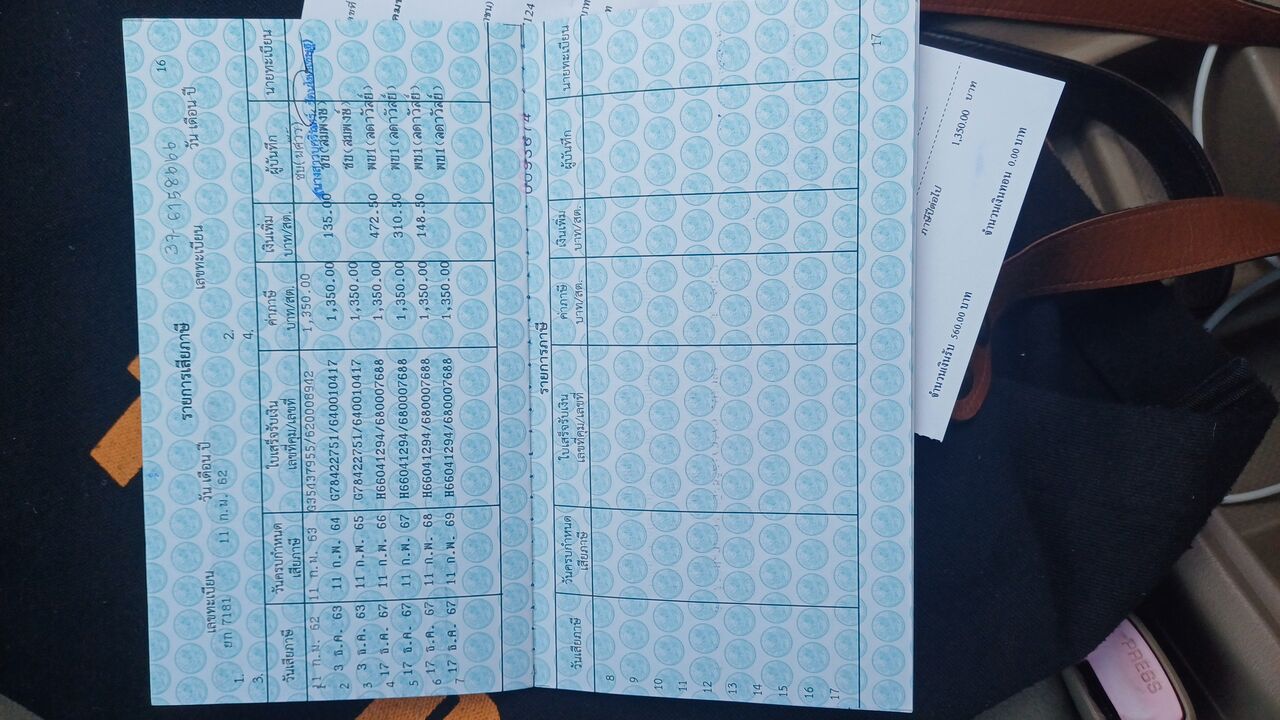 16
รายการเสียภาษี
37-6158666
เลขทะเบียน วัน เดือน ปี เลขทะเบียน วัน เดือน ปี
1. ยก 7181 11 ก.ม. 62 2.
3. 4.
วันเสียภาษี วันครบกำหนดเสียภาษี ใบเสร็จรับเงิน เล่มที่คุม/เลขที่ ค่าภาษี บาท/สต. เงินเพิ่ม บาท/สต. ผู้บันทึก นายทะเบียน
1 11 ก.ม. 62 11 ก.ม. 63 G35437955/620008942 1,350.00
2 3 ธ.ค. 63 11 ก.พ. 64 G78422751/640010417 1,350.00 135.00 ชบ(สมพงษ์)
3 3 ธ.ค. 63 11 ก.พ. 65 G78422751/640010417 1,350.00 ชบ(สมพงษ์)
4 17 ธ.ค. 67 11 ก.พ. 66 H66041294/680007688 1,350.00 472.50 พบ1(ลดาวัลย์)
5 17 ธ.ค. 67 11 ก.พ. 67 H66041294/680007688 1,350.00 310.50 พบ1(ลดาวัลย์)
6 17 ธ.ค. 67 11 ก.พ. 68 H66041294/680007688 1,350.00 148.50 พบ1(ลดาวัลย์)
7 17 ธ.ค. 67 11 ก.พ. 69 H66041294/680007688 1,350.00 พบ1(ลดาวัลย์)
รายการภาษี
วันเสียภาษี วันครบกำหนดเสียภาษี ใบเสร็จรับเงิน เล่มที่คุม/เลขที่ ค่าภาษี บาท/สต. เงินเพิ่ม บาท/สต. ผู้บันทึก นายทะเบียน
8
9
10
11
12
13
14
15
16
17
17
124
ภาษีปีต่อไป 1,350.00 บาท
จำนวนเงินรับ 560.00 บาท จำนวนเงินทอน 0.00 บาท
PRESS